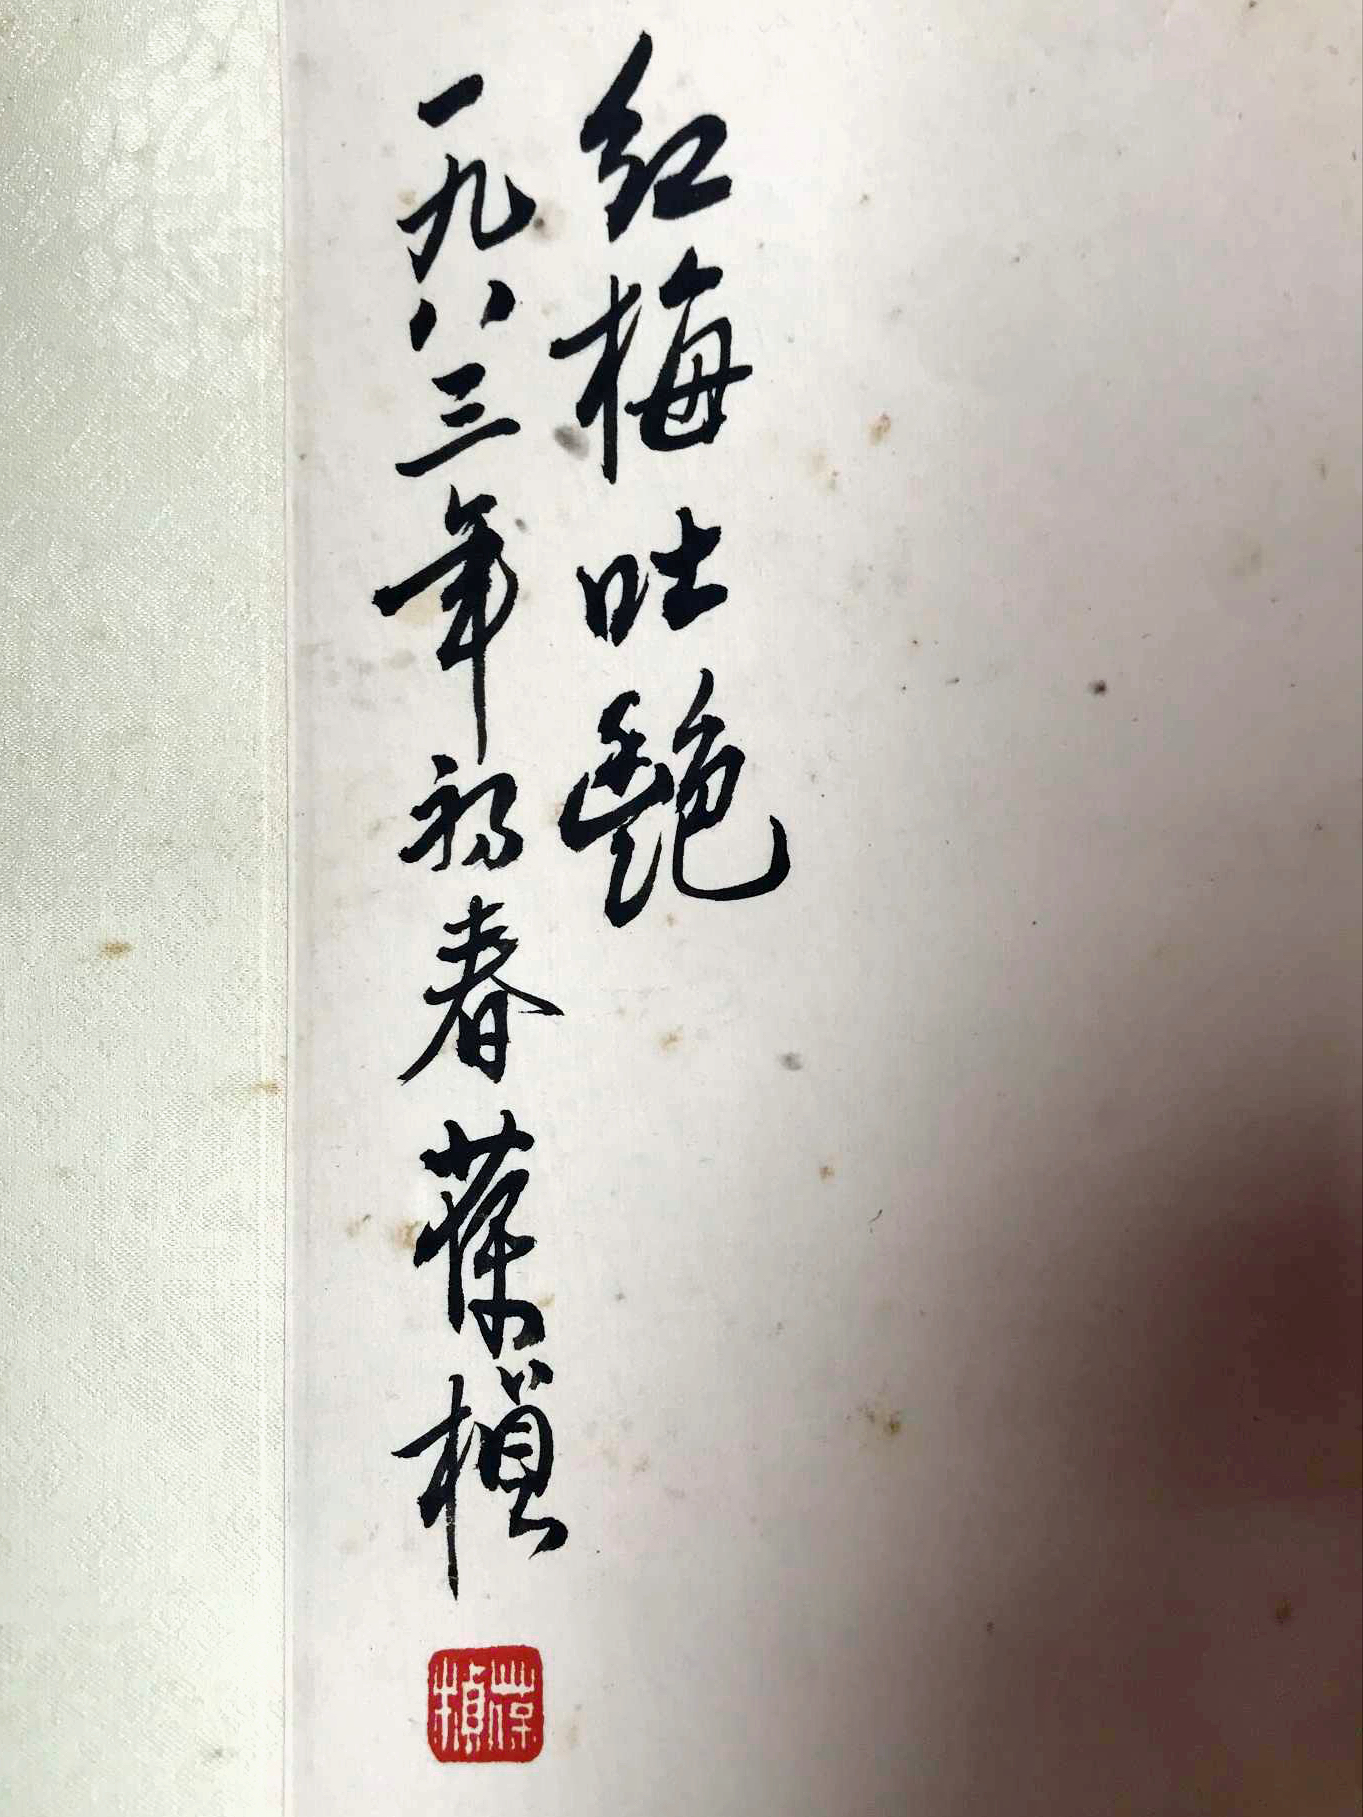 红梅吐艳
一九八三年初春葆桢
葆桢